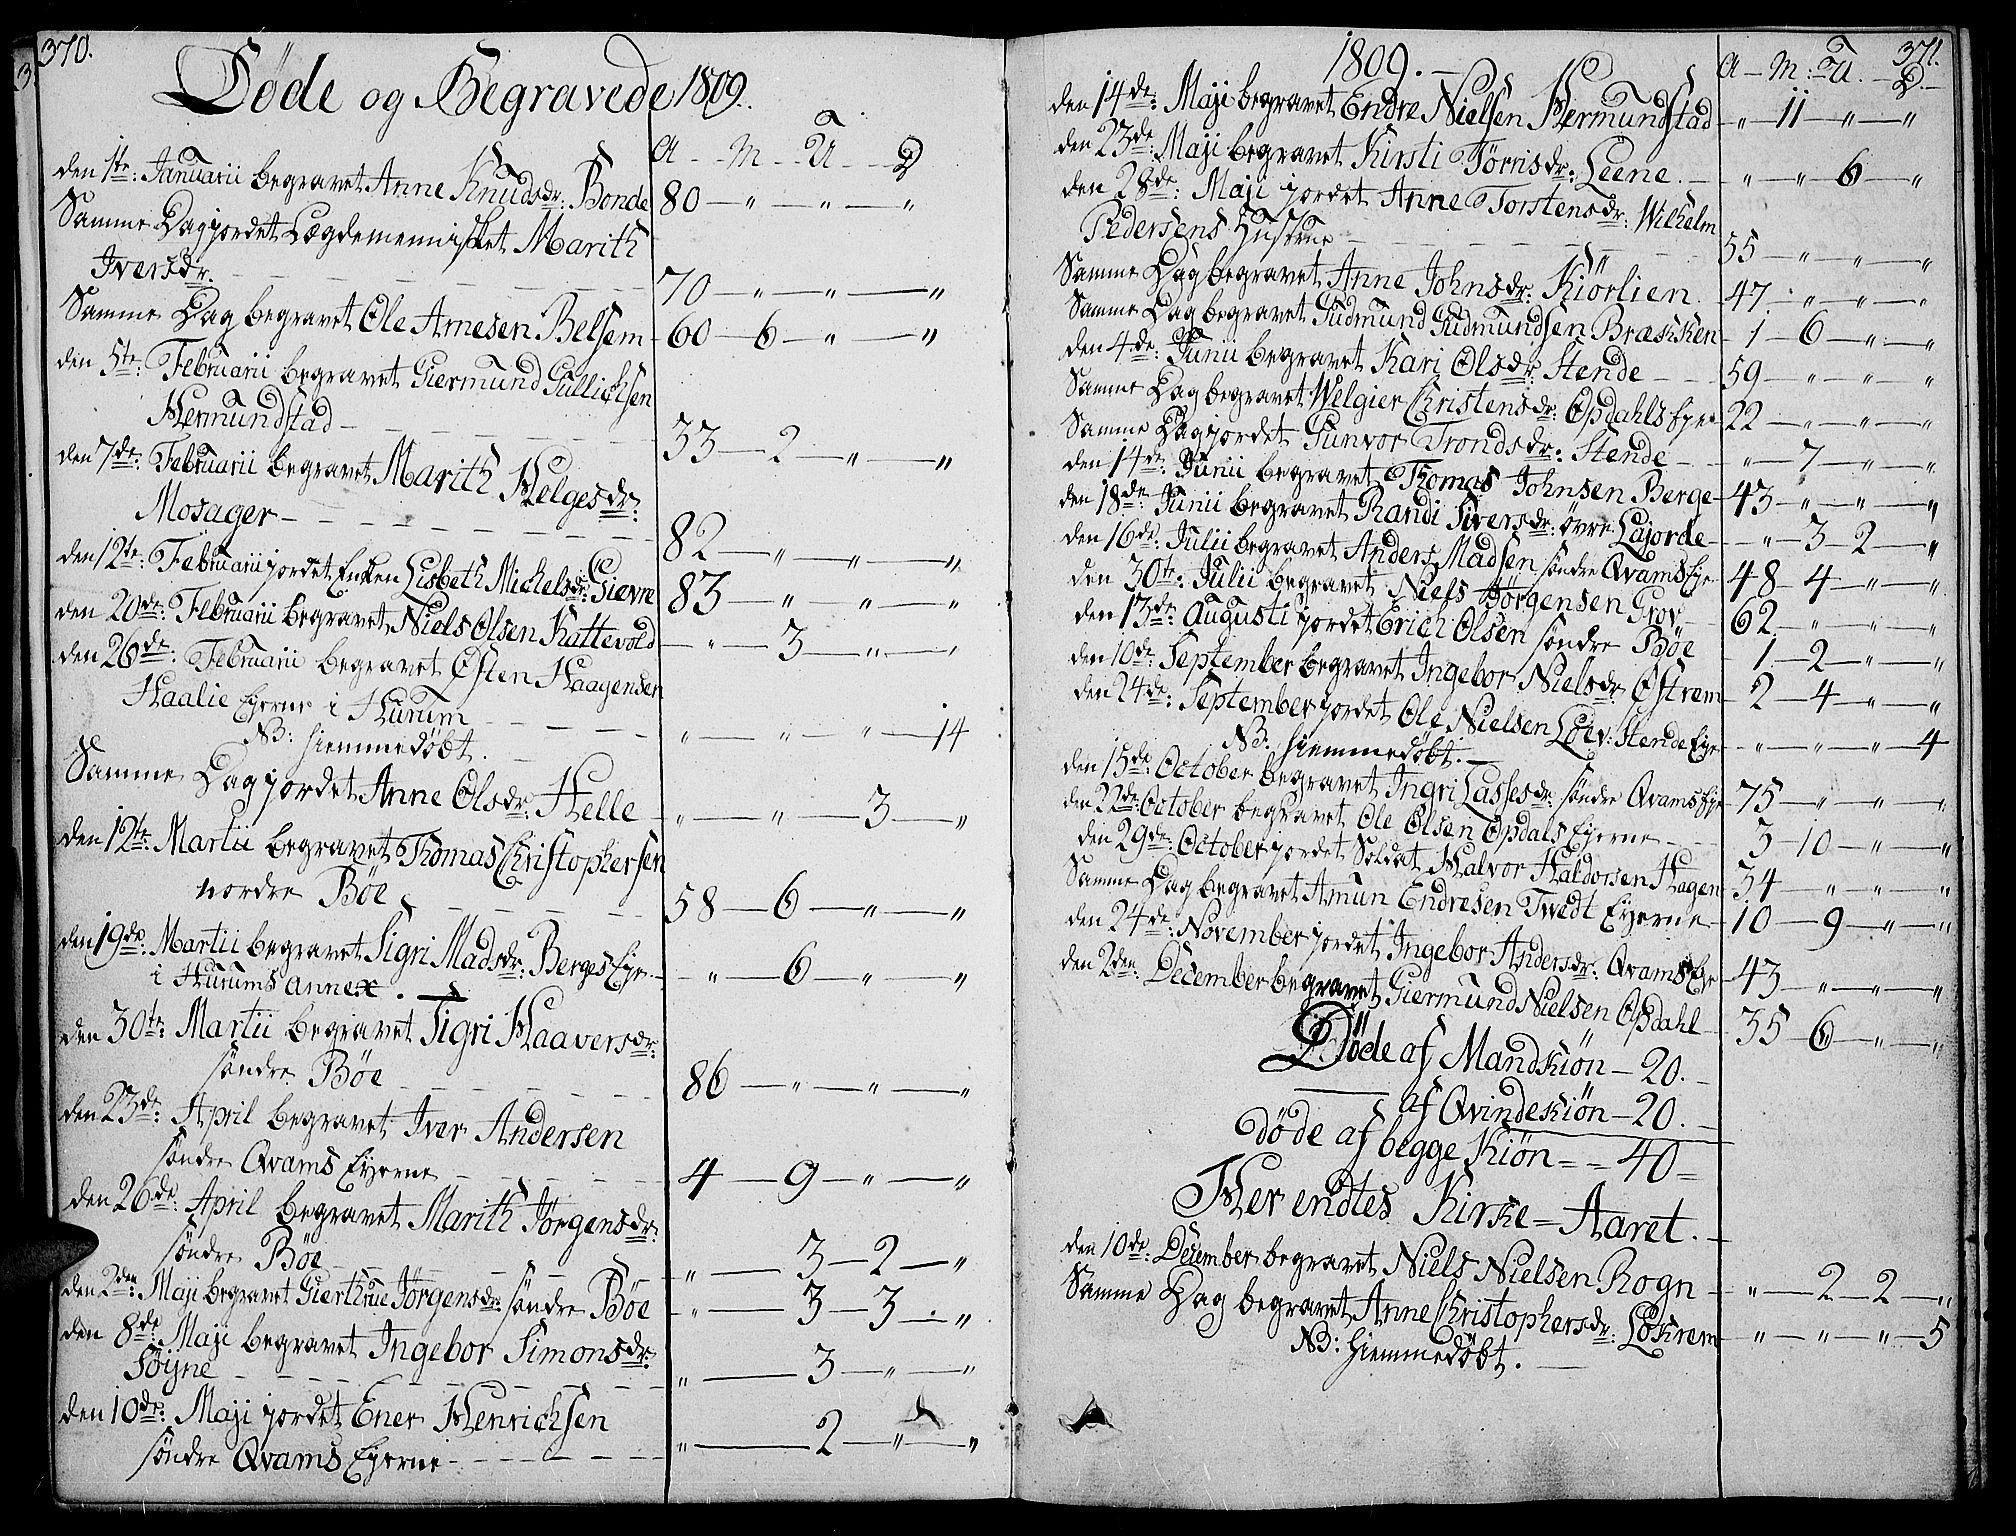 370.
Døde og Begravede 1809.
A - M - U - D
den 1te: Januarii begravet Anne Knudsdr: Bonde 80 — " — " — "
Samme Dag jordet Lægdemennisket Marith
Iversdr. — 70 — " — " — "
Samme Dag begravet Ole Arnesen Belsem — 60 — 6 — " — "
den 5te: Februarii begravet Giermund Gullichsen
Hermundstad — 33 — 2 — " — "
den 7de: Februarii begravet Marith Helgesdr:
Mosager — 82 — " — " — "
den 12te: Februarii jordet Enken Lisbeth Michelsdr: Gievre 83 — " — " — "
den 20de: Februarii begravet Niels Olsen Kattevold — " — 3 — " — "
den 26de: Februarii begravet Østen Haagensen
Haalie Ejerne i Hurum
NB: hiemmedøbt. — " — " — " — 14
Samme Dag jordet Anne Olsdr: Helle — " — " — 3 — "
den 12te: Martii begravet Thomas Christophersen
nordre Bøe — 58 — 6 — " — "
den 19de: Martii begravet Sigri Madsdr: Berges Eje — " — 6 — " — "
i Hurums annex.
den 30te: Martii begravet Sigri Haaversdr:
søndre Bøe — 86 — " — " — "
den 23de: April begravet Iver Andersen
søndre Qvams Ejerne — 4 — 9 — " — "
den 26de: April begravet Marith Jørgensdr:
søndre Bøe — " — 3 — 2 — "
den 2den: Maji begravet Gierthrue Jørgensdr: søndre Bøe — " — 3 — 3 — "
den 8de: Maji begravet Ingebor Simonsdr:
Søyne — " — 3 — " — "
den 10de: Maji jordet Ener Henrichsen
søndre Qvams Ejerne — " — 2 — " — "
371.
1809. —
A — M: — U. — D. —
den 14de: Maji begravet Endre Nielsen Hermundstad — " — 11 — " — "
den 23de: Maji begravet Kirsti Tørrisdr: Leene. — " — " — 6 — "
den 28de: Maji jordet Anne Torstensdr: Wilhelm
Pedersens Hustrue — 55 — " — " — "
Samme Dag begravet Anne Johnsdr: Kiørlien. — 47 — " — " — "
Samme Dag begravet Gudmund Gudmundsen Brækken — 1 — 6 — " — "
den 4de: Junii begravet Kari Olsdr: Stende — 59 — " — " — "
Samme Dag begravet Welgier Christensdr: Opdahls Eje — 22 — " — " — "
Samme Dag jordet Gunvor Trondsdr: Stende — " — 7 — " — "
den 14de: Junii begravet Thomas Johnsen Berge — 43 — " — " — "
den 18de: Junii begravet Randi Siversdr: øvre Lajorde — " — 3 2 — "
den 16de: Julii begravet Anders Madsen søndre Qvams Eje — 48 4 — " — "
den 30te: Julii begravet Niels Jørgensen Grov — 62 — " — " — "
den 13de: Augusti jordet Erich Olsen søndre Bøe — 1 — 2 — " — "
den 10de: September begravet Ingebor Nielsdr: Østrem — 2 — 4 — " — "
den 24de: September jordet Ole Nielsen Løev: Stende Eje — " — " — " — 4
NB: hiemmedøbt. —
den 15de: October begravet Ingri Lassesdr: søndre Qvams Eje — 75 — " — " — "
den 22de: October begravet Ole Olsen Opdals Ejerne — 3 — 10 — " — "
den 29de: October jordet Soldat Halvor Haldorsen Hagen — 34 — " — " — "
Samme Dag begravet Amun Endresen Twedt Ejerne — 10 — 9 — " — "
den 24de: November jordet Ingebor Andersdr: Qvams Eje — 43 — " — " — "
den 2den: December begravet Giermund Nielsen Opdahl — 35 — 6 — " — "
Døde af Mandkiøn — 20. —
— af Qvindekiøn — 20. —
døde af begge Kiøn = = 40 =
Her endtes Kirke = Aaret. —
den 10de: December begravet Niels Nielsen Rogn — " — 2 — 2 — "
Samme Dag begravet Anne Christophersdr: Løkrem — " — " — " — 5
NB: hiemmedøbt. —